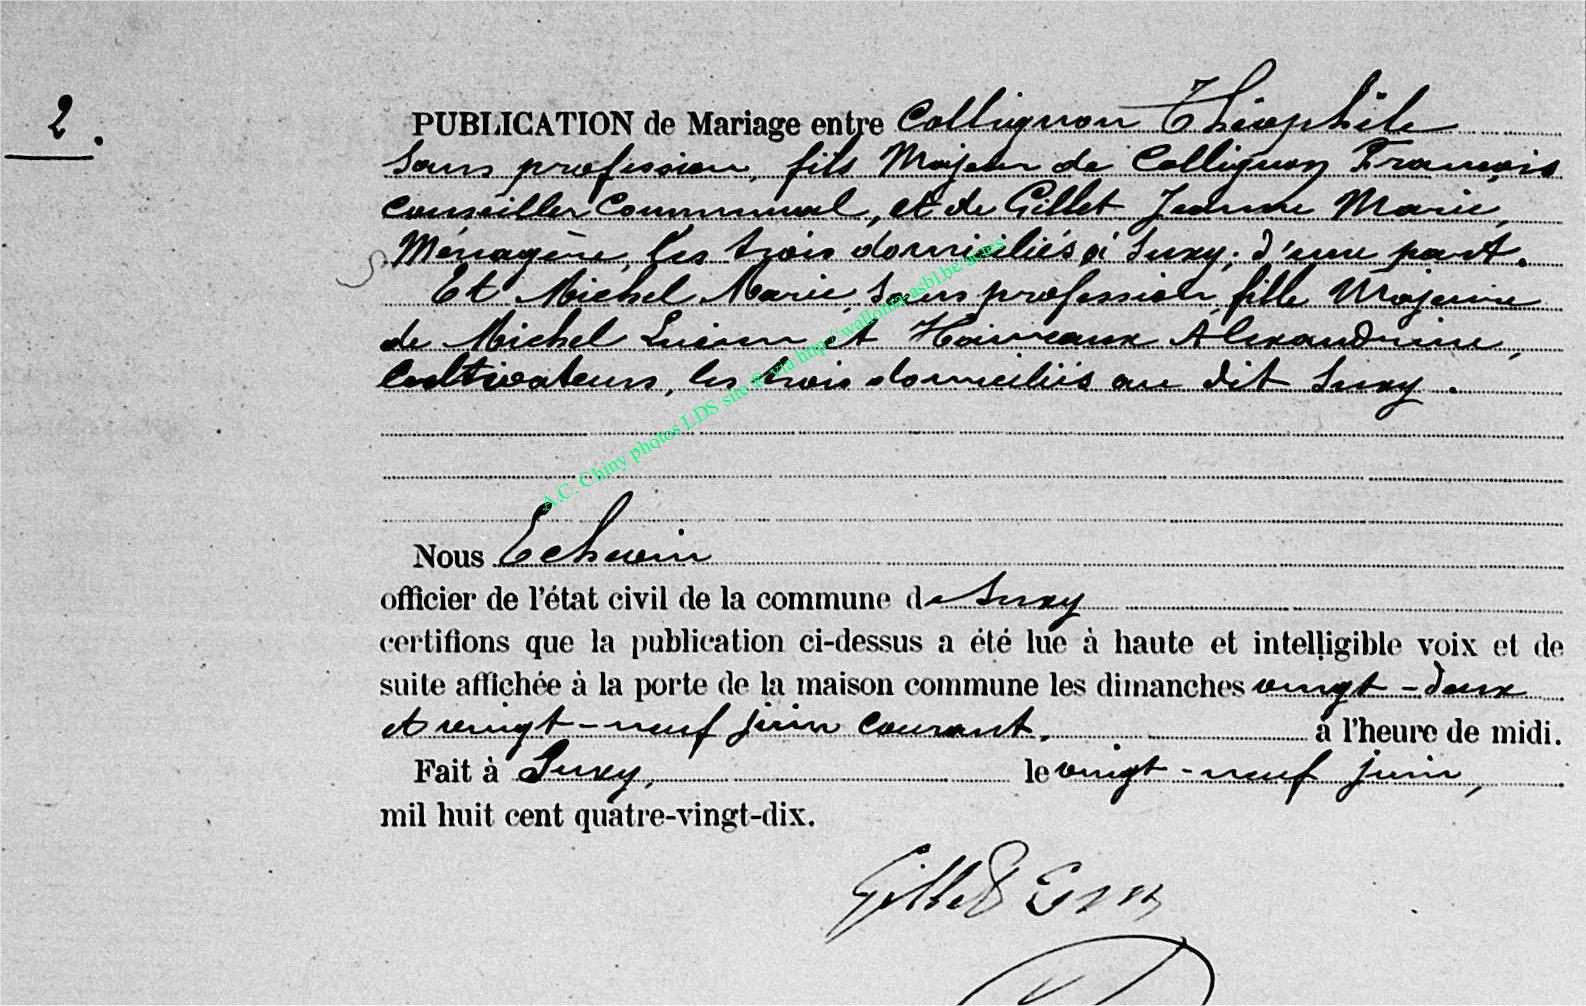 2.
PUBLICATION de Mariage entre Collignon Théophile
Sans profession, fils Majeur de Collignon François
Conseiller Communal, et de Gillet Jeanne Marie,
Ménagère, les trois domiciliés à Suxy, d'une part.
Et Michel Marie, Sans profession, fille Majeure
de Michel Lucien et Hainneaux Alexandrine,
Cultivateurs, les trois domiciliés au dit Suxy.
A.C. Chiny photos LDS site © via http://wallonia-asbl.be/actes
Nous Echevin
officier de l'état civil de la commune de Suxy
certifions que la publication ci-dessus a été lue à haute et intelligible voix et de
suite affichée à la porte de la maison commune les dimanches vingt-deux
et vingt-neuf juin courant. à l'heure de midi.
Fait à Suxy, le vingt-neuf juin,
mil huit cent quatre-vingt-dix.
Gillet